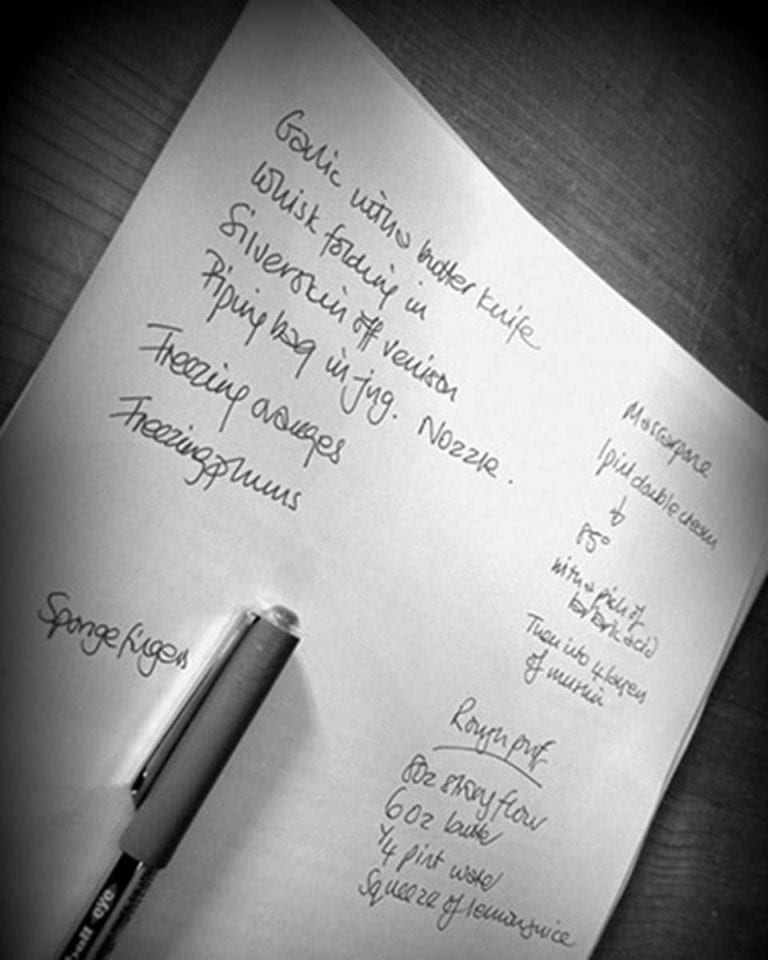 Garlic with a butter knife
Whisk folding in
Silverskin off venison
Piping bag in jug. Nozzle.
Freezing oranges
Freezing plums
Sponge fingers
Mascarpone
1 pint double cream
85°
with a pich of
tartaric acid
Then into 4 layers
of muslin
Rough puff
8oz strong flour
6oz butter
1/4 pint water
Squeeze of lemon juice
ball eye